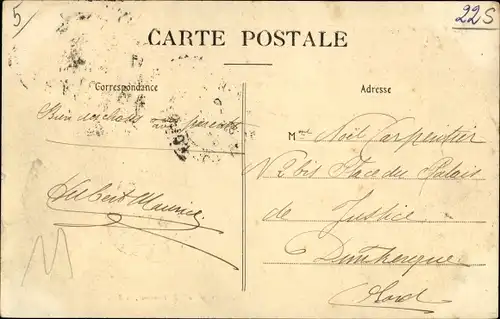 5
22S
CARTE POSTALE
Correspondance
Adresse
Bien des chose aux parents
Hilbert Maurice
Mme Noël Carpentier
N 2 bis Place du Palais
de Justice
Dunkerque
Nord